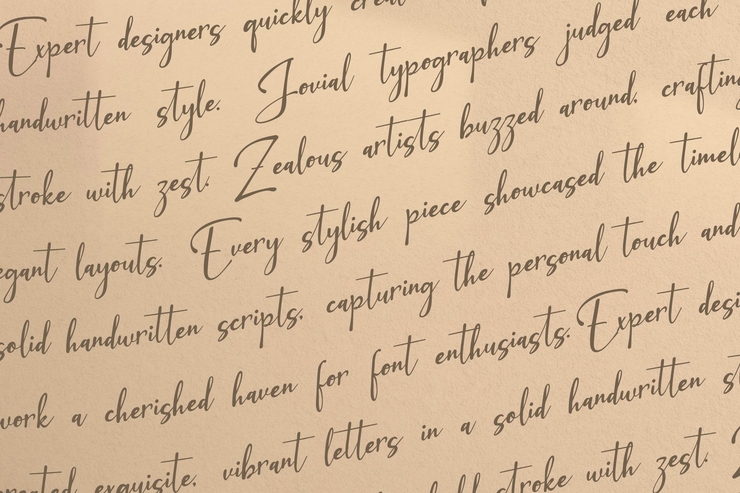 Expert designers quickly
handwritten style. Jovial typographers judged each
stroke with zest. Zealous artists buzzed around, crafting
layouts. Every stylish piece showcased the
solid handwritten scripts, capturing the personal touch and
work a cherished haven for font enthusiasts. Expert
exquisite, vibrant letters in a solid handwritten
stroke with zest.